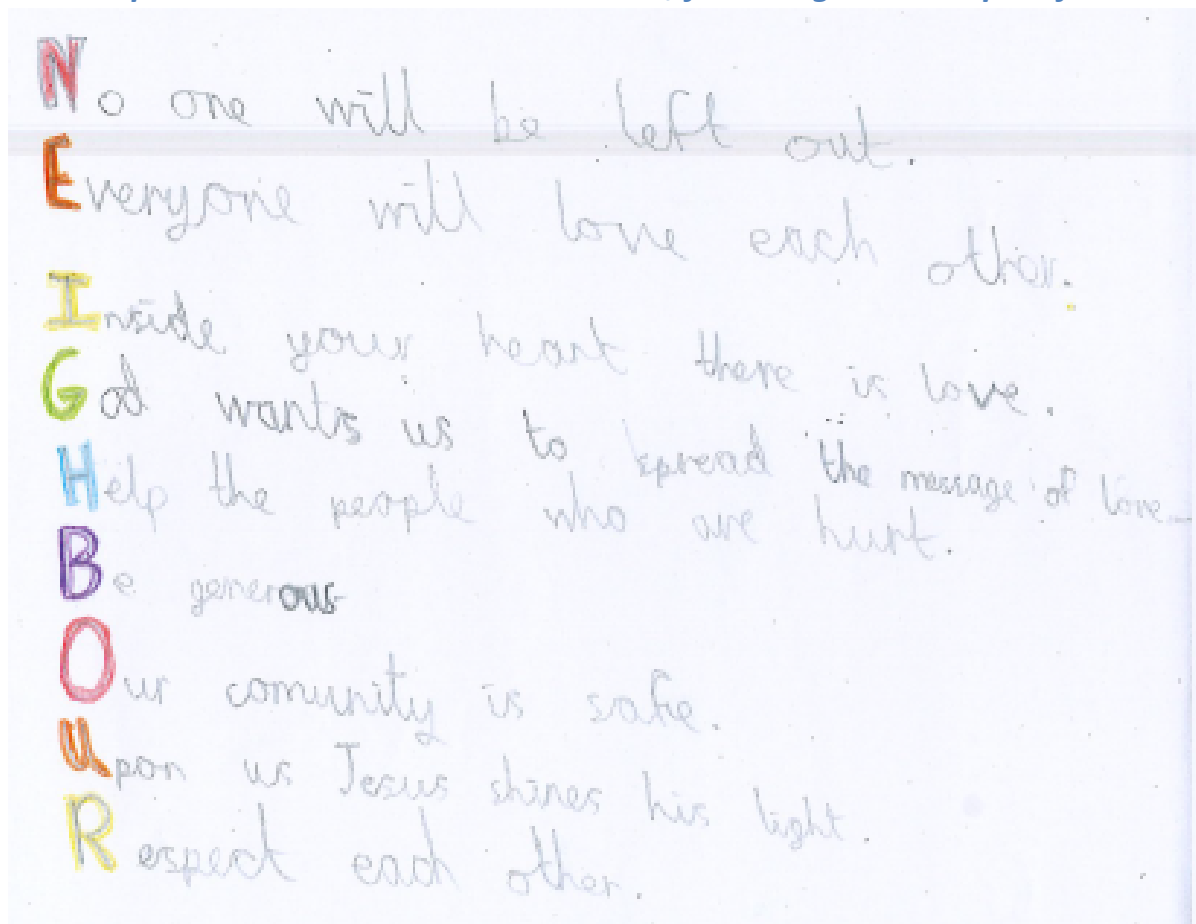 No one will be left out.
Everyone will love each other.
Inside your heart there is love.
God wants us to spread the message of love
Help the people who are hurt.
Be generous
Our comunity is safe.
Upon us Jesus shines his light.
Respect each other.